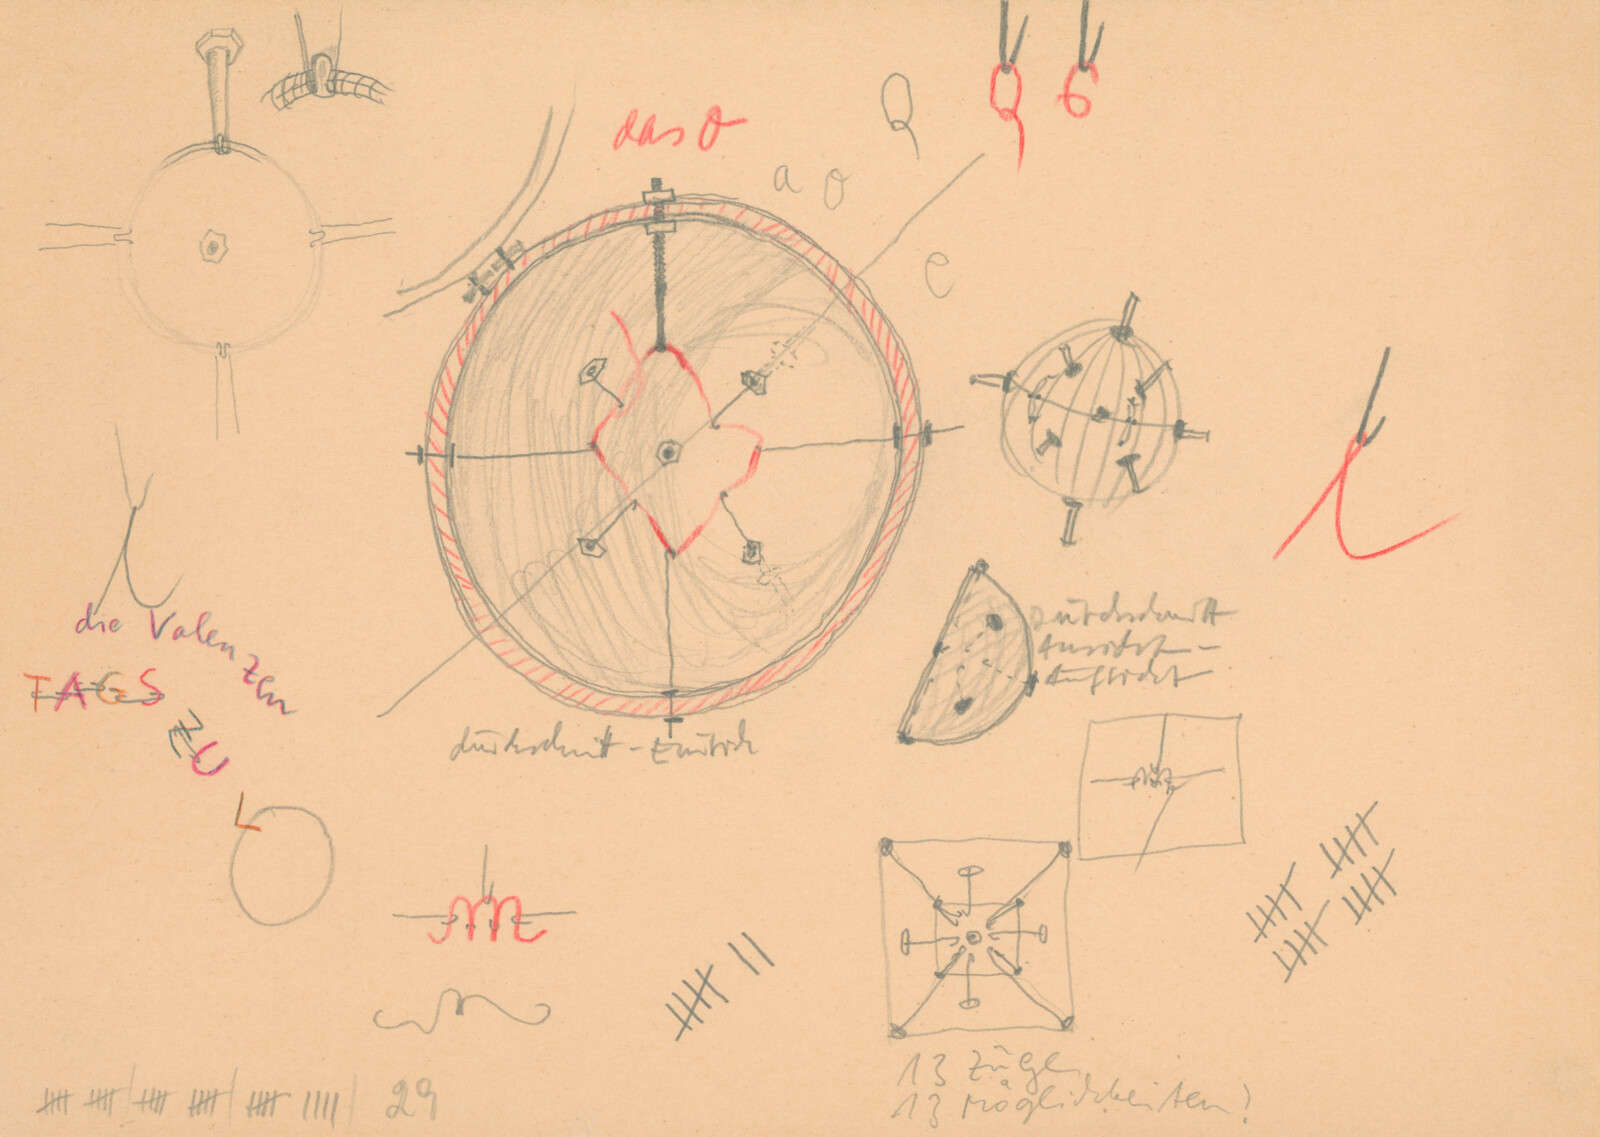 das o
a o
e
die Valenzen
TAGS
ZU
L
durchschnitt -
durchschnitt
Aufsicht
m
29
13 Züge
13 Möglichkeiten?